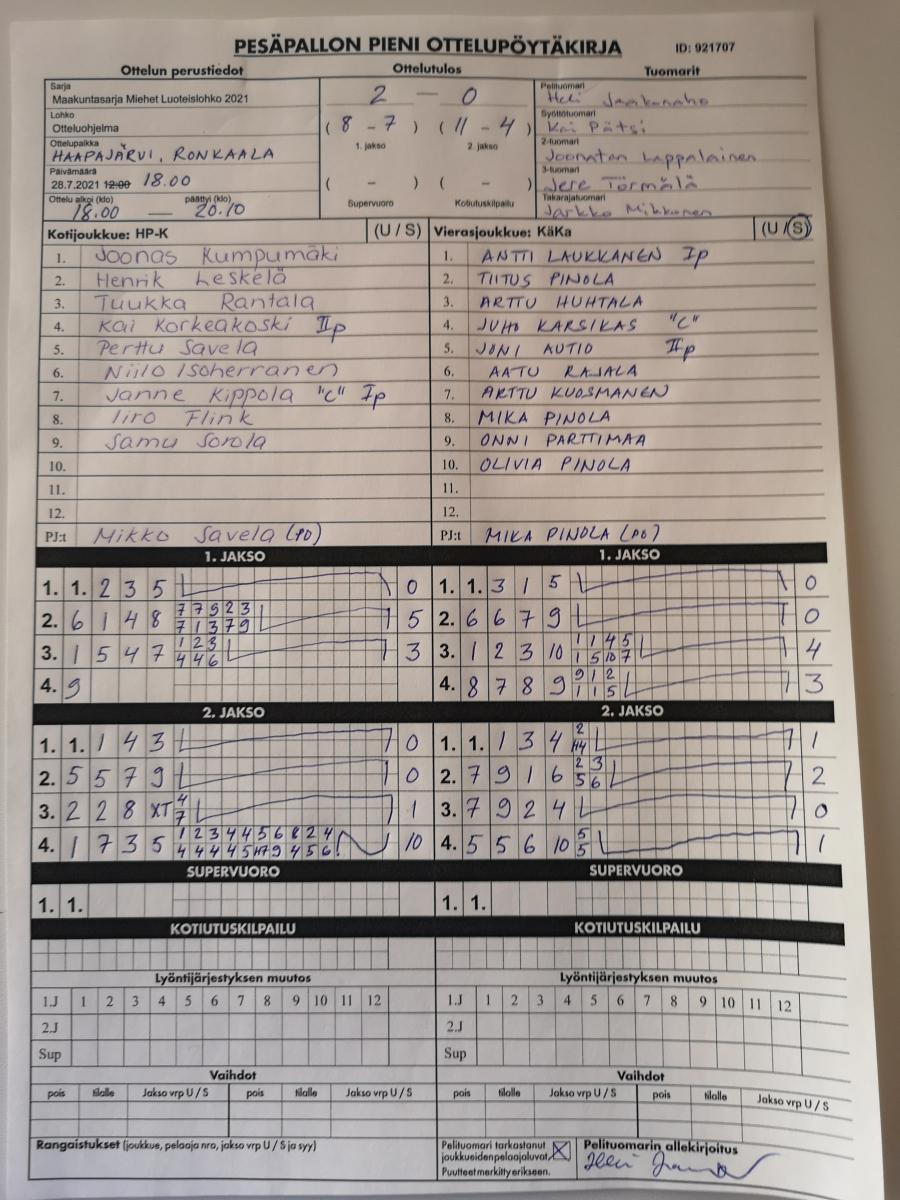 PESÄPALLON PIENI OTTELUPÖYTÄKIRJA ID: 921707
Ottelun perustiedot Ottelutulos Tuomarit
Sarja
Maakuntasarja Miehet Luoteislohko 2021
Lohko
Otteluohjelma
Ottelupaikka
HAAPAJÄRVI, RONKAALA
Päivämäärä
28.7.2021 12:00 18.00
Ottelu alkoi (klo) päättyi (klo)
18.00 — 20.10
2 — 0
( 8 - 7 ) ( 11 - 4 )
1. jakso 2. jakso
( - ) ( - )
Supervuoro Kotiutuskilpailu
Pelituomari
Heli
Syöttötuomari
Kai Pätsi
2-tuomari
Joonatan Lappalainen
3-tuomari
Jere Törmälä
Takarajatuomari
Jarkko Mikkonen
Kotijoukkue: HP-K (U / S)
1. Joonas Kumpumäki
2. Henrik Leskelä
3. Tuukka Rantala
4. Kai Korkeakoski IIp
5. Perttu Savela
6. Niilo Isoherranen
7. Janne Kippola "C" Ip
8. Iiro Flink
9. Samu Sorola
10.
11.
12.
PJ:t Mikko Savela (PO)
Vierasjoukkue: KäKa (U / S)
1. ANTTI LAUKKANEN Ip
2. TIITUS PINOLA
3. ARTTU HUHTALA
4. JUHO KARSIKAS "C"
5. JONI AUTIO IIp
6. AATU RAJALA
7. ARTTU KUOSMANEN
8. MIKA PINOLA
9. ONNI PARTTIMAA
10. OLIVIA PINOLA
11.
12.
PJ:t MIKA PINOLA (PO)
1. JAKSO
1. 1. 2 3 5 0
2. 6 1 4 8 7 7 9 2 3 5
7 1 3 7 9
3. 1 5 4 7 1 2 3 3
4 4 6
4. 9
1. JAKSO
1. 1. 3 1 5 0
2. 6 6 7 9 0
3. 1 2 3 10 1 1 4 5 4
1 5 10 7
4. 8 7 8 9 9 1 2 3
1 1 5
2. JAKSO
1. 1. 1 4 3 0
2. 5 5 7 9 0
3. 2 2 8 XT 4 1
7
4. 1 7 3 5 1 2 3 4 4 5 6 8 2 4 10
2. JAKSO
1. 1. 1 3 4 2 1
2. 7 9 1 6 2 3 2
5 6
3. 7 9 2 4 0
4. 5 5 6 10 5 1
5
SUPERVUORO
1. 1.
SUPERVUORO
1. 1.
KOTIUTUSKILPAILU
KOTIUTUSKILPAILU
Lyöntijärjestyksen muutos
1.J 1 2 3 4 5 6 7 8 9 10 11 12
2.J
Sup
Lyöntijärjestyksen muutos
1.J 1 2 3 4 5 6 7 8 9 10 11 12
2.J
Sup
Vaihdot
pois tilalle Jakso vrp U / S pois tilalle Jakso vrp U / S
Vaihdot
pois tilalle Jakso vrp U / S pois tilalle Jakso vrp U / S
Rangaistukset (joukkue, pelaaja nro, jakso vrp U / S ja syy)
Pelituomari tarkastanut
joukkueiden pelaajaluvat,
Puutteet merkitty erikseen.
Pelituomarin allekirjoitus